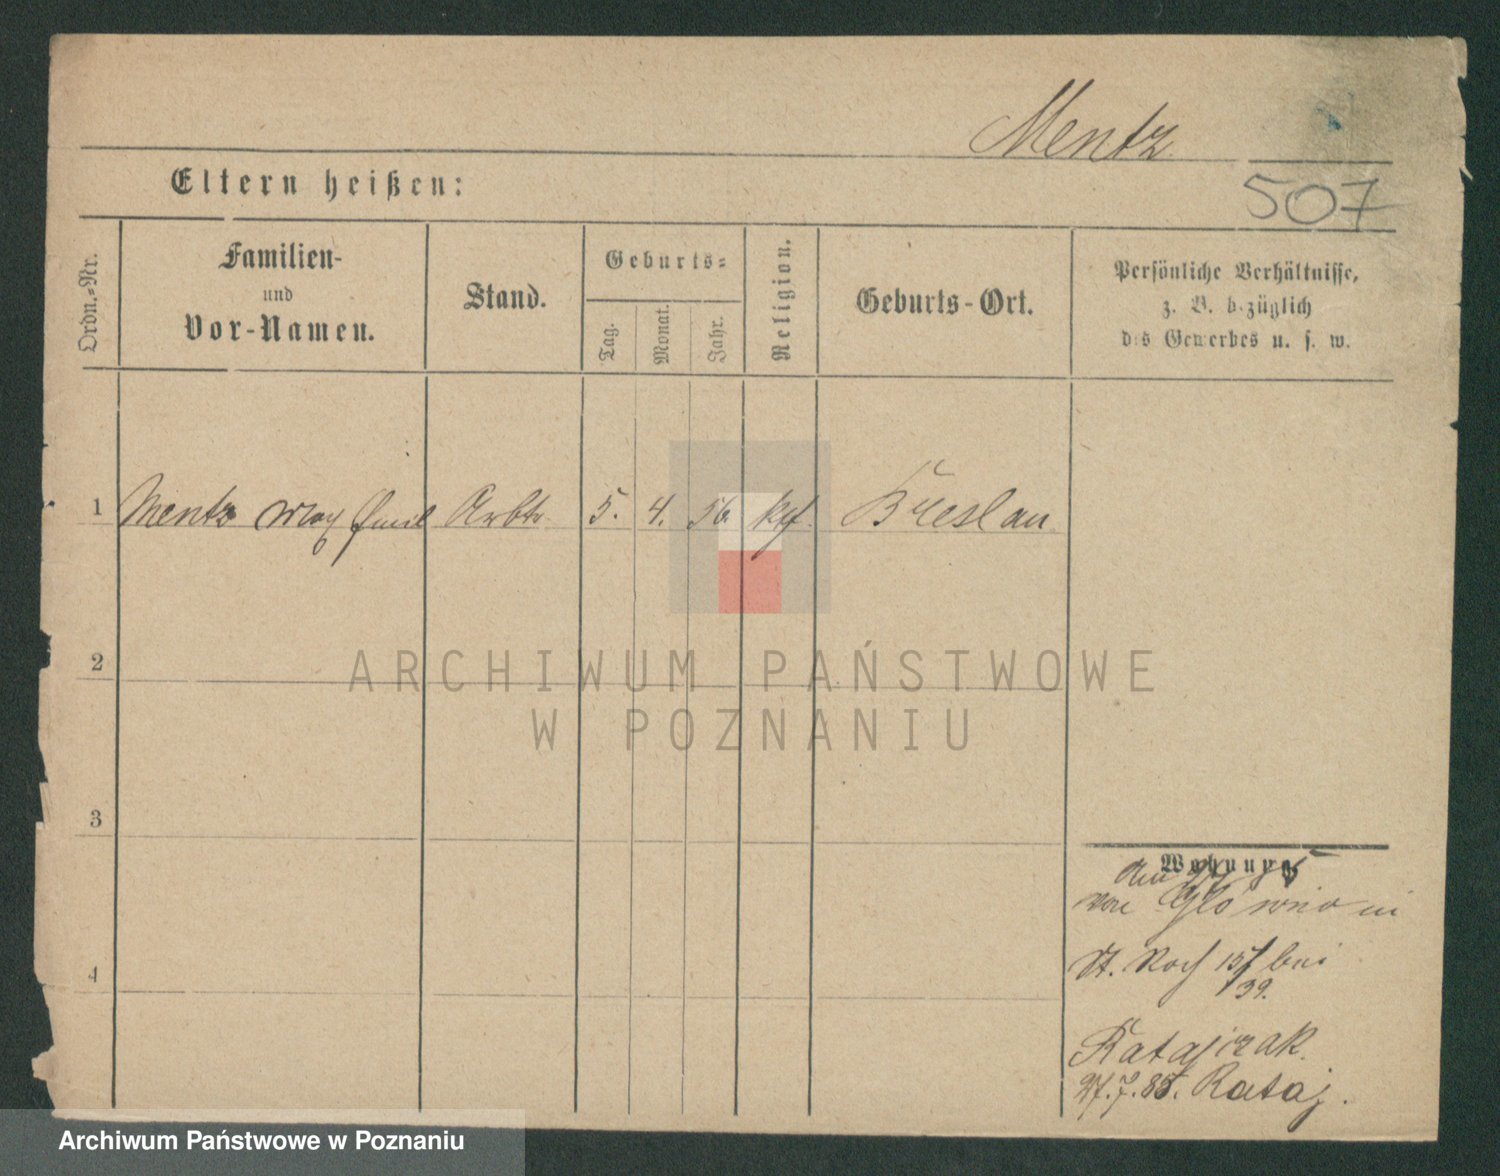 Mentz
507
Eltern heißen:
Ordn.-Nr.
Familien-
und
Vor-Namen.
Stand.
Geburts-
Tag.
Monat.
Jahr.
Religion.
Geburts-Ort.
Persönliche Verhältnisse,
z. B. bezüglich
des Gewerbes u. s. w.
1 Mentz Max Emil Arbtr. 5. 4. 56 kth. Breslau
2
3
4
ARCHIWUM PAŃSTWOWE
W POZNANIU
Wohnung
von Glowno in
St. Roch 15/ bei
39.
Ratajczak.
27.7.85. Rataj.
Archiwum Państwowe w Poznaniu